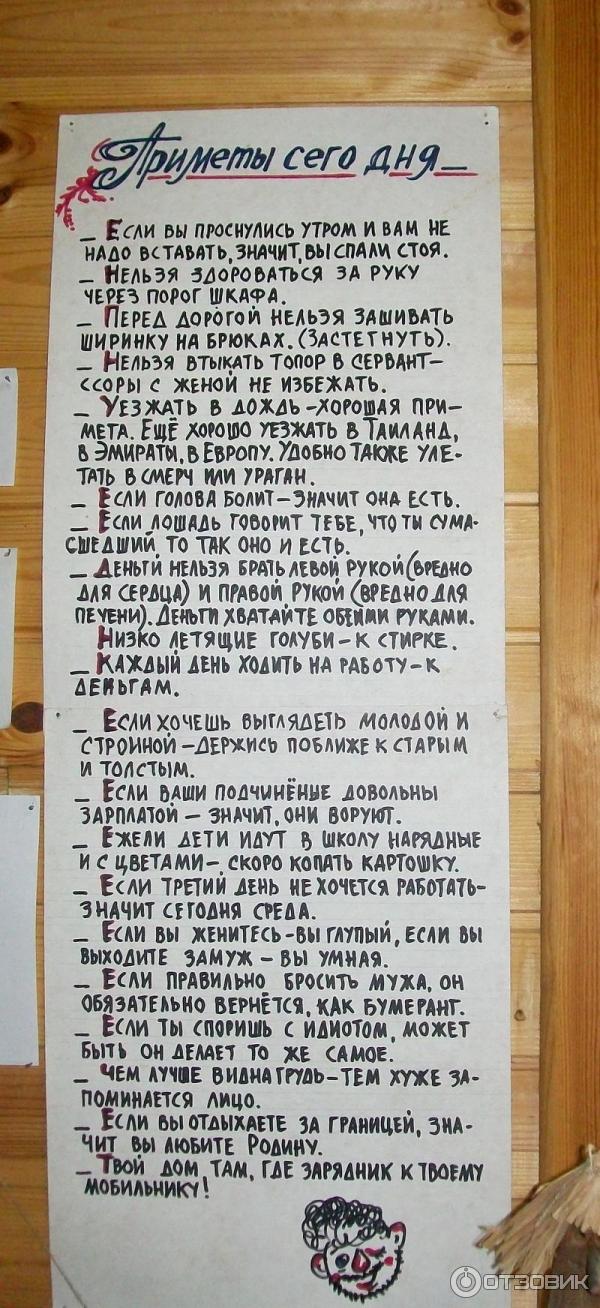 Приметы сего дня_
_ Если вы проснулись утром и вам не
надо вставать, значит, вы спали стоя.
_ Нельзя здороваться за руку
через порог шкафа.
_ Перед дорогой нельзя зашивать
ширинку на брюках. (Застегнуть).
_ Нельзя втыкать топор в сервант-
ссоры с женой не избежать.
_ Уезжать в дождь - хорошая при-
мета. Ещё хорошо уезжать в Таиланд,
в Эмираты, в Европу. Удобно также уле-
тать в смерч или ураган.
_ Если голова болит - значит она есть.
_ Если лошадь говорит тебе, что ты сума-
сшедший, то так оно и есть.
_ Деньги нельзя брать левой рукой (вредно
для сердца) и правой рукой (вредно для
печени). Деньги хватайте обеими руками.
Низко летящие голуби - к стирке.
_ Каждый день ходить на работу - к
деньгам.
_ Если хочешь выглядеть молодой и
стройной - держись поближе к старым
и толстым.
_ Если ваши подчинёные довольны
зарплатой - значит, они воруют.
_ Ежели дети идут в школу нарядные
и с цветами -, скоро копать картошку.
_ Если третий день не хочется работать-
значит сегодня среда.
_ Если вы женитесь - вы глупый, если вы
выходите замуж - вы умная.
_ Если правильно бросить мужа, он
обязательно вернётся, как бумеранг.
_ Если ты споришь с идиотом, может
быть он делает то же самое.
_ Чем лучше видна грудь - тем хуже за-
поминается лицо.
_ Если вы отдыхаете за границей, зна-
чит вы любите Родину.
_ Твой дом там, где зарядник к твоему
мобильнику!
ОТЗОВИК